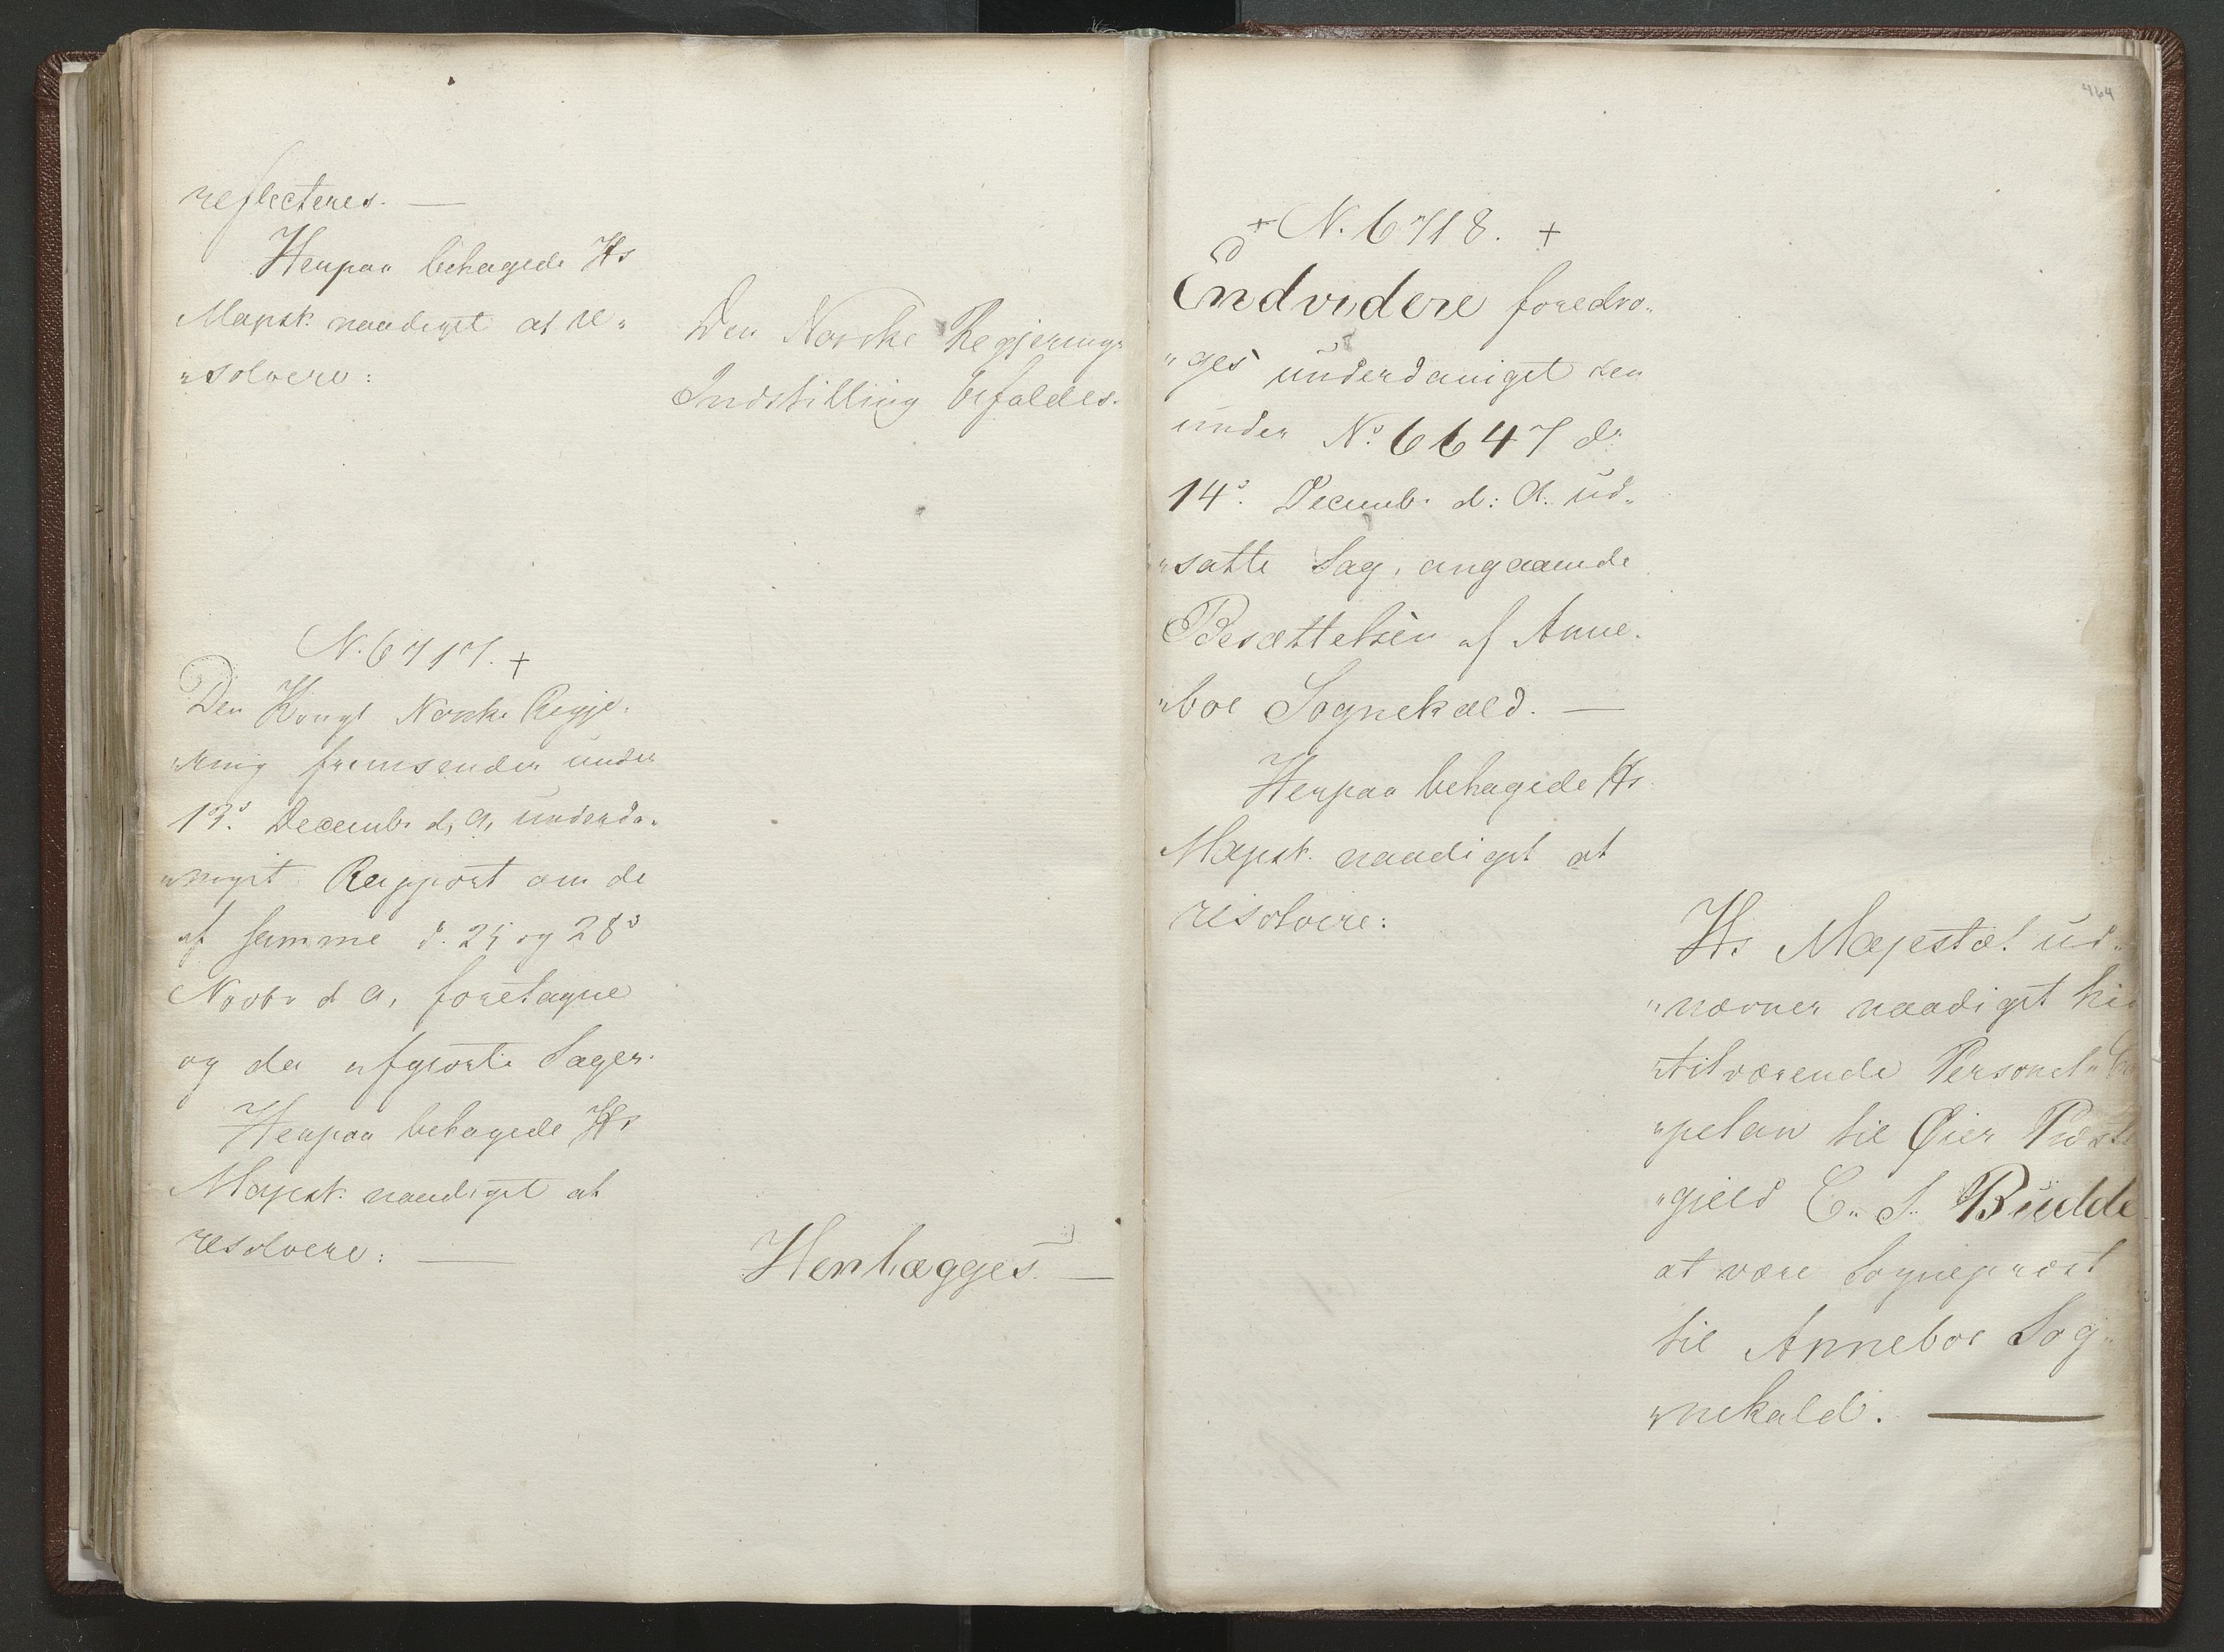 reflecteres. —
Herpaa behagede Hs
Majest. naadigst at re„
„solvere:
Den Norske Regjerings
Indstilling bifaldes.
N. 6717. +
Den Kongl Norske Regje„
„ring fremsender under
13de Decemb. d. A. underda„
„nigst Rapport om de
af samme d. 25 og 28de
Novbr d A, foretagne
og da afgiorte Sager.
Herpaa behagede Hs
Majest. naadigst at
resolvere: —
Henlægges. —
464
+ N. 6718. +
Endvidere foredro„
„ges underdanigst den
under No 6647 d.
14de Decemb. d: A. ud„
„satte Sag, angaaende
Besættelsen af Anne„
„boe Sognekald. —
Herpaa behagede Hs
Majest. naadigst at
resolvere:
Hs Majestæt ud„
„nævner naadigst hid
„tilværende Personel„
„pelan til Øier Præste
„gield C. S. Budde
at være Sognepræst
til Anneboe Sog„
„nekald. —